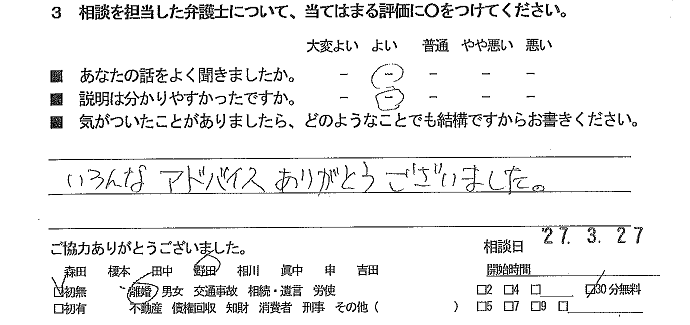 3 相談を担当した弁護士について、当てはまる評価に○をつけてください。
大変よい よい 普通 やや悪い 悪い
■ あなたの話をよく聞きましたか。 － － － － －
■ 説明は分かりやすかったですか。 － － － － －
■ 気がついたことがありましたら、どのようなことでも結構ですからお書きください。
いろんな アドバイス ありがとう ございました。
ご協力ありがとうございました。 相談日 '27. 3. 27
森田 榎本 田中 野田 相川 眞中 申 吉田 開始時間
□初無 離婚 男女 交通事故 相続・遺言 労使 □2 □4 □ □30分無料
□初有 不動産 債権回収 知財 消費者 刑事 その他 ( ) □5 □7 □9 □